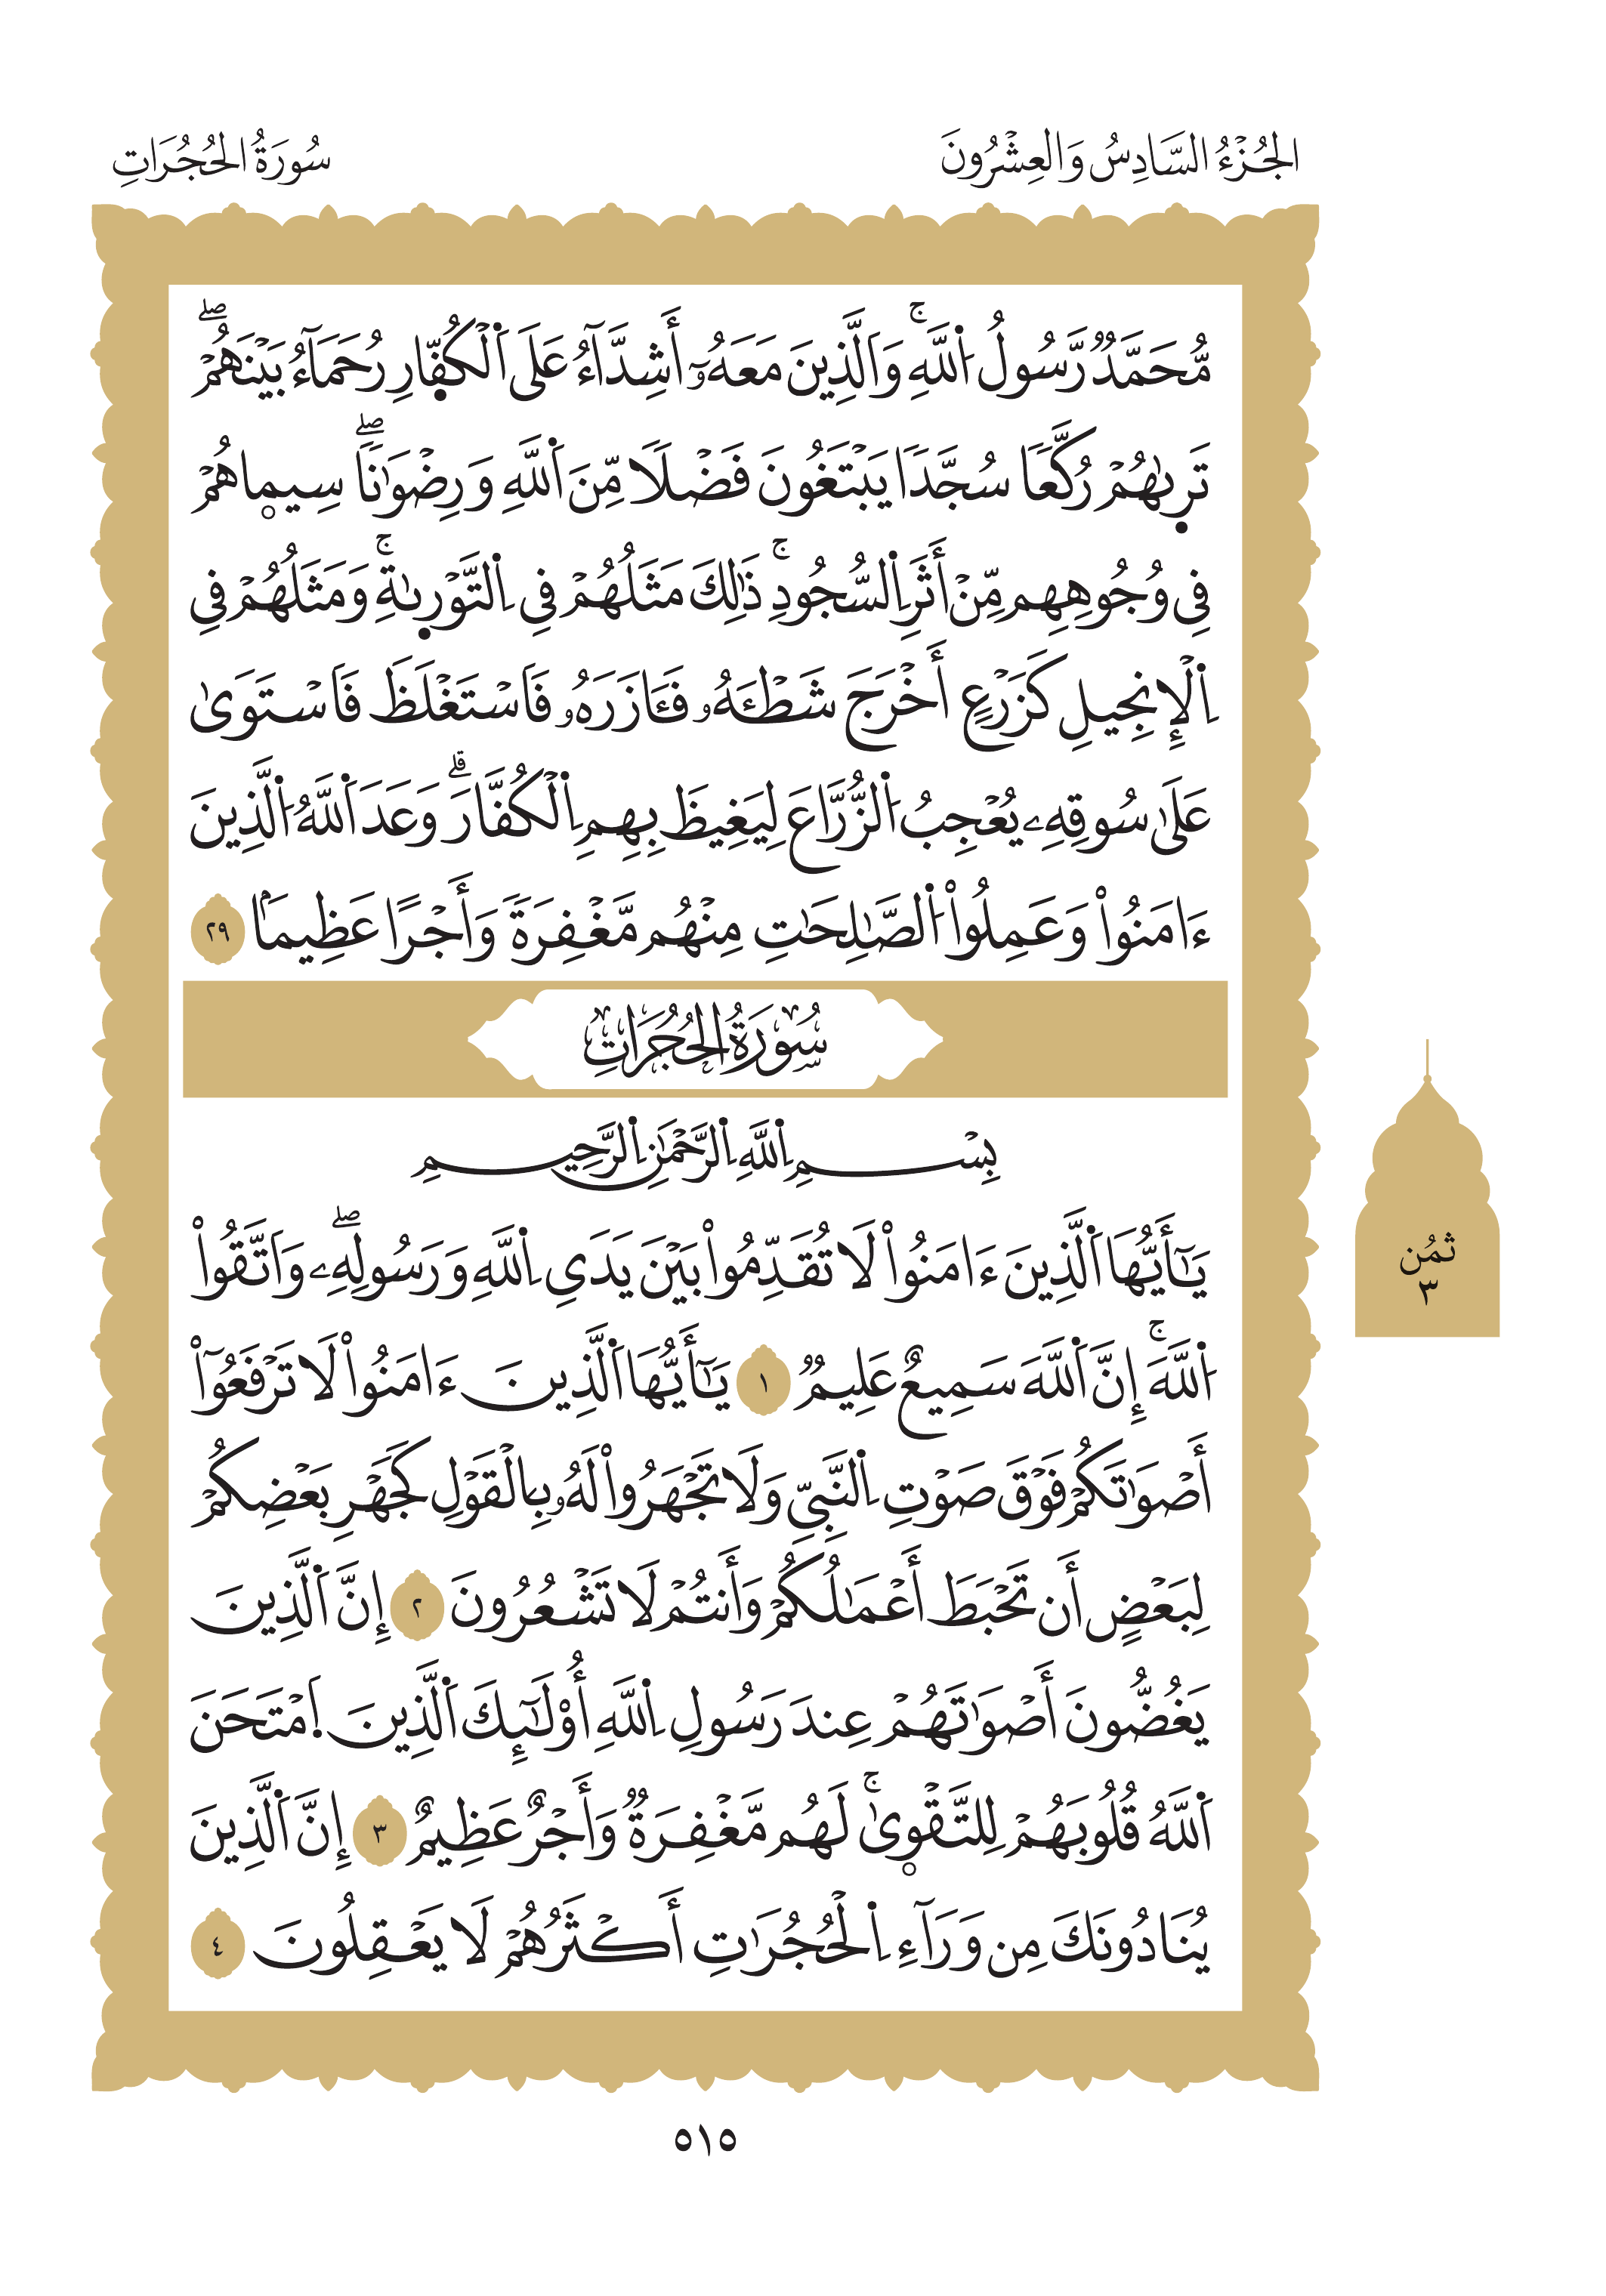 الجُزْءُ السَّادِسُ وَالعِشْرُونَ
سُورَةُ الحُجُرَاتِ
مُّحَمَّدٞ رَّسُولُ اُ۬للَّهِۚ وَالَّذِينَ مَعَهُۥٓ أَشِدَّآءُ عَلَى اَ۬لْكُفّ۪ارِ رُحَمَآءُ بَيْنَهُمْۖ
تَر۪ىٰهُمْ رُكَّعٗا سُجَّدٗا يَبْتَغُونَ فَضْلٗا مِّنَ اَ۬للَّهِ وَرِضْوَٰنٗاۖ سِيم۪اهُمْ
فِى وُجُوهِهِم مِّنْ أَثَرِ اِ۬لسُّجُودِۚ ذَٰلِكَ مَثَلُهُمْ فِى اِ۬لتَّوْر۪ىٰةِۚ وَمَثَلُهُمْ فِى
اِ۬لْإِنجِيلِ كَزَرْعٍ أَخْرَجَ شَطْـَٔهُۥ فَـَٔازَرَهُۥ فَاسْتَغْلَظَ فَاسْتَوَىٰ
عَلَىٰ سُوقِهِۦ يُعْجِبُ اُ۬لزُّرَّاعَ لِيَغِيظَ بِهِمِ اِ۬لْكُفَّارَۗ وَعَدَ اَ۬للَّهُ اُ۬لَّذِينَ
ءَامَنُواْ وَعَمِلُواْ اُ۬لصَّٰلِحَٰتِ مِنْهُم مَّغْفِرَةٗ وَأَجْرًا عَظِيمَۢا ٢٩
سُورَةُ الحُجُرَاتِ
بِسْمِ اِ۬للَّهِ اِ۬لرَّحْمَٰنِ اِ۬لرَّحِيمِ
يَٰٓأَيُّهَا اَ۬لَّذِينَ ءَامَنُواْ لَا تُقَدِّمُواْ بَيْنَ يَدَىِ اِ۬للَّهِ وَرَسُولِهِۦۖ وَاتَّقُواْ
اُ۬للَّهَۚ إِنَّ اَ۬للَّهَ سَمِيعٌ عَلِيمٞ ١ يَٰٓأَيُّهَا اَ۬لَّذِينَ ءَامَنُواْ لَا تَرْفَعُوٓاْ
أَصْوَٰتَكُمْ فَوْقَ صَوْتِ اِ۬لنَّبِىِّ وَلَا تَجْهَرُواْ لَهُۥ بِالْقَوْلِ كَجَهْرِ بَعْضِكُمْ
لِبَعْضٍ أَن تَحْبَطَ أَعْمَٰلُكُمْ وَأَنتُمْ لَا تَشْعُرُونَ ٢ إِنَّ اَ۬لَّذِينَ
يَغُضُّونَ أَصْوَٰتَهُمْ عِندَ رَسُولِ اِ۬للَّهِ أُوْلَٰٓئِكَ اَ۬لَّذِينَ اَ۪مْتَحَنَ
اَ۬للَّهُ قُلُوبَهُمْ لِلتَّقْو۪ىٰۚ لَهُم مَّغْفِرَةٞ وَأَجْرٌ عَظِيمٌ ٣ إِنَّ اَ۬لَّذِينَ
يُنَادُونَكَ مِن وَرَآءِ اِ۬لْحُجُرَٰتِ أَكْثَرُهُمْ لَا يَعْقِلُونَ ٤
ثمُن
٣
٥١٥